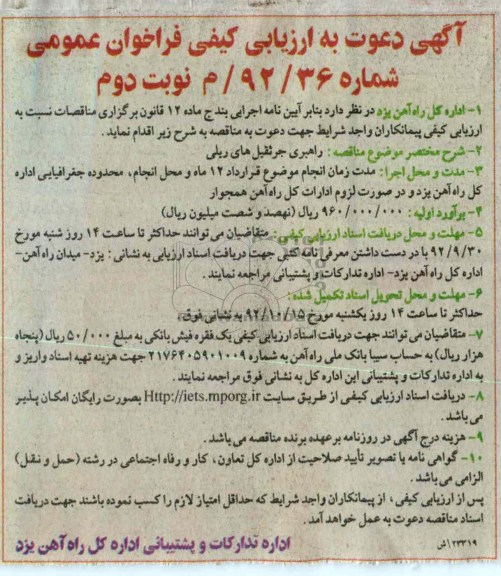 آگهی دعوت به ارزیابی کیفی فراخوان عمومی
شماره ۹۲/۳۶/م نوبت دوم
۱- اداره کل راه آهن یزد در نظر دارد بنابر آیین نامه اجرایی بند ج ماده ۱۲ قانون برگزاری مناقصات نسبت به
ارزیابی کیفی پیمانکاران واجد شرایط جهت دعوت به مناقصه به شرح زیر اقدام نماید.
۲- شرح مختصر موضوع مناقصه: راهبری جرثقیل های ریلی
۳- مدت و محل اجرا: مدت زمان انجام موضوع قرارداد ۱۲ ماه و محل انجام، محدوده جغرافیایی اداره
کل راه آهن یزد و در صورت لزوم ادارات کل راه آهن همجوار
۴- برآورد اولیه: ۹۶۰/۰۰۰/۰۰۰ ریال (نهصد و شصت میلیون ریال)
۵- مهلت و محل دریافت اسناد ارزیابی کیفی: متقاضیان می توانند حداکثر تا ساعت ۱۴ روز شنبه مورخ
۹۲/۹/۳۰ با در دست داشتن معرفی نامه کتبی جهت دریافت اسناد ارزیابی به نشانی: یزد- میدان راه آهن-
اداره کل راه آهن یزد- اداره تدارکات و پشتیبانی مراجعه نمایند.
۶- مهلت و محل تحویل اسناد تکمیل شده:
حداکثر تا ساعت ۱۴ روز یکشنبه مورخ ۹۲/۱۰/۱۵ به نشانی فوق.
۷- متقاضیان می توانند جهت دریافت اسناد ارزیابی کیفی یک فقره فیش بانکی به مبلغ ۵۰/۰۰۰ ریال (پنجاه
هزار ریال) به حساب سیبا بانک ملی راه آهن به شماره ۲۱۷۶۴۰۵۹۰۱۰۰۹ جهت هزینه تهیه اسناد واریز و
به اداره تدارکات و پشتیبانی این اداره کل به نشانی فوق مراجعه نمایند.
۸- دریافت اسناد ارزیابی کیفی از طریق سایت Http://iets.mporg.ir بصورت رایگان امکان پذیر
می باشد.
۹- هزینه درج آگهی در روزنامه برعهده برنده مناقصه می باشد.
۱۰- گواهی نامه یا تصویر تأیید صلاحیت از اداره کل تعاون، کار و رفاه اجتماعی در رشته (حمل و نقل)
الزامی می باشد.
پس از ارزیابی کیفی، از پیمانکاران واجد شرایط که حداقل امتیاز لازم را کسب نموده باشند جهت دریافت
اسناد مناقصه دعوت به عمل خواهد آمد.
۲۳۳۱۹/ش
اداره تدارکات و پشتیبانی اداره کل راه آهن یزد